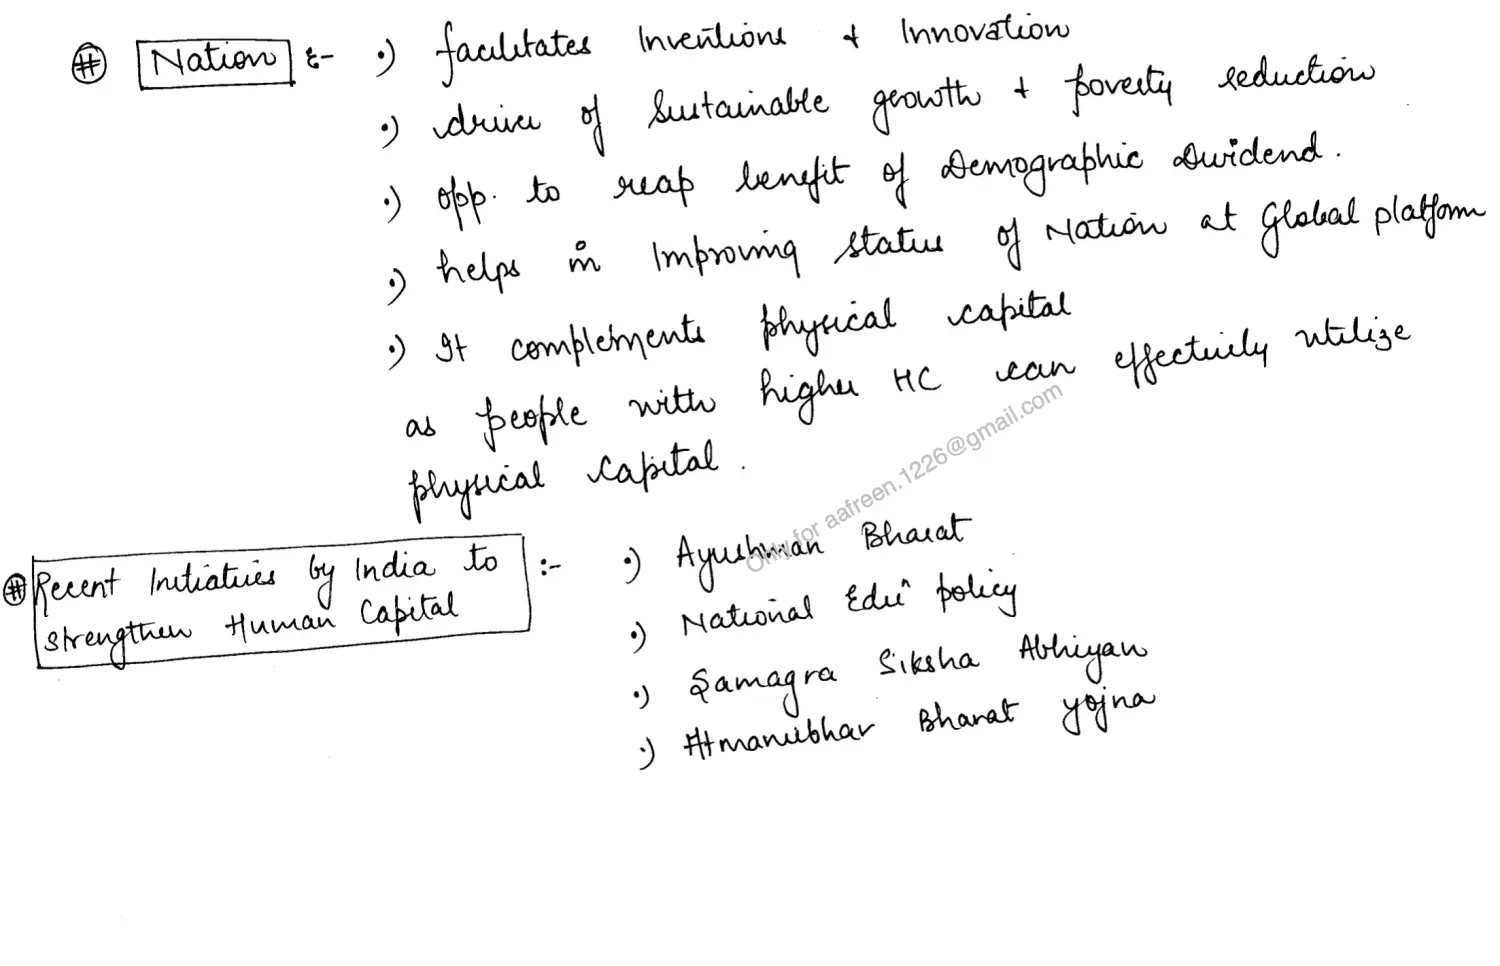 # Nation :- •) facilitates Inventions & Innovation
•) driver of Sustainable growth & poverty reduction
•) opp. to reap benefit of Demographic Dividend.
•) helps in Improving status of Nation at Global platform
•) It complements physical capital
as people with higher HC can effectively utilize
physical Capital.
Only for aafreen.1226@gmail.com
# Recent Initiatives by India to :- •) Ayushman Bharat
strengthen Human Capital
•) National Eduⁿ policy
•) Samagra Siksha Abhiyan
•) Atmanirbhar Bharat yojna